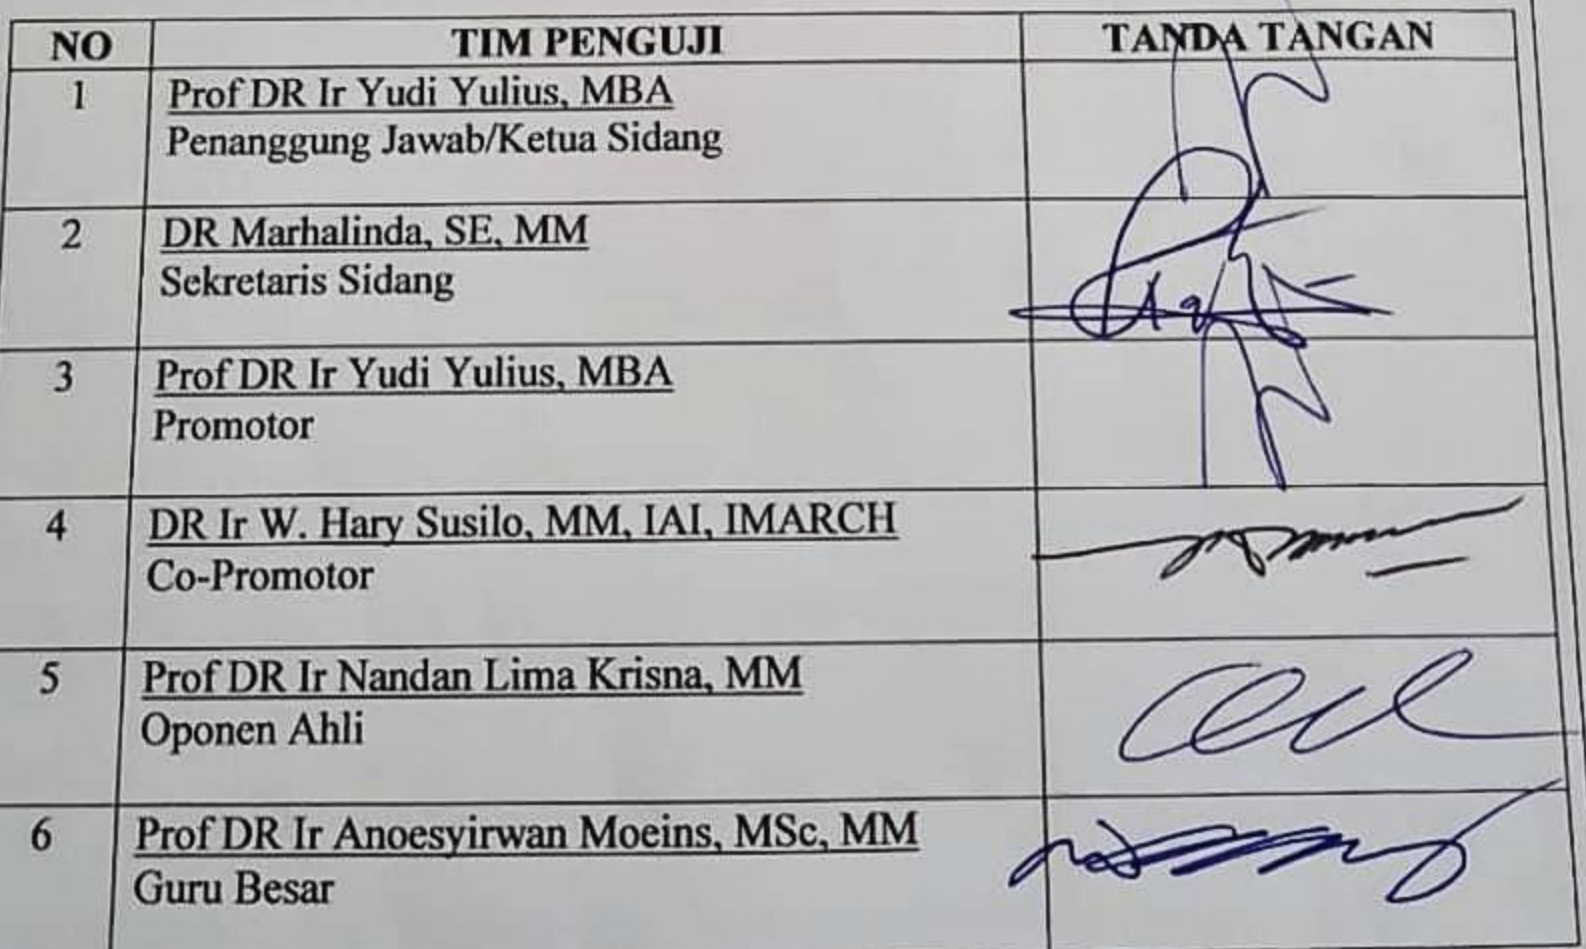 NO TIM PENGUJI TANDA TANGAN
1 Prof DR Ir Yudi Yulius, MBA
Penanggung Jawab/Ketua Sidang
2 DR Marhalinda, SE, MM
Sekretaris Sidang
3 Prof DR Ir Yudi Yulius, MBA
Promotor
4 DR Ir W. Hary Susilo, MM, IAI, IMARCH
Co-Promotor
5 Prof DR Ir Nandan Lima Krisna, MM
Oponen Ahli
6 Prof DR Ir Anoesyirwan Moeins, MSc, MM
Guru Besar